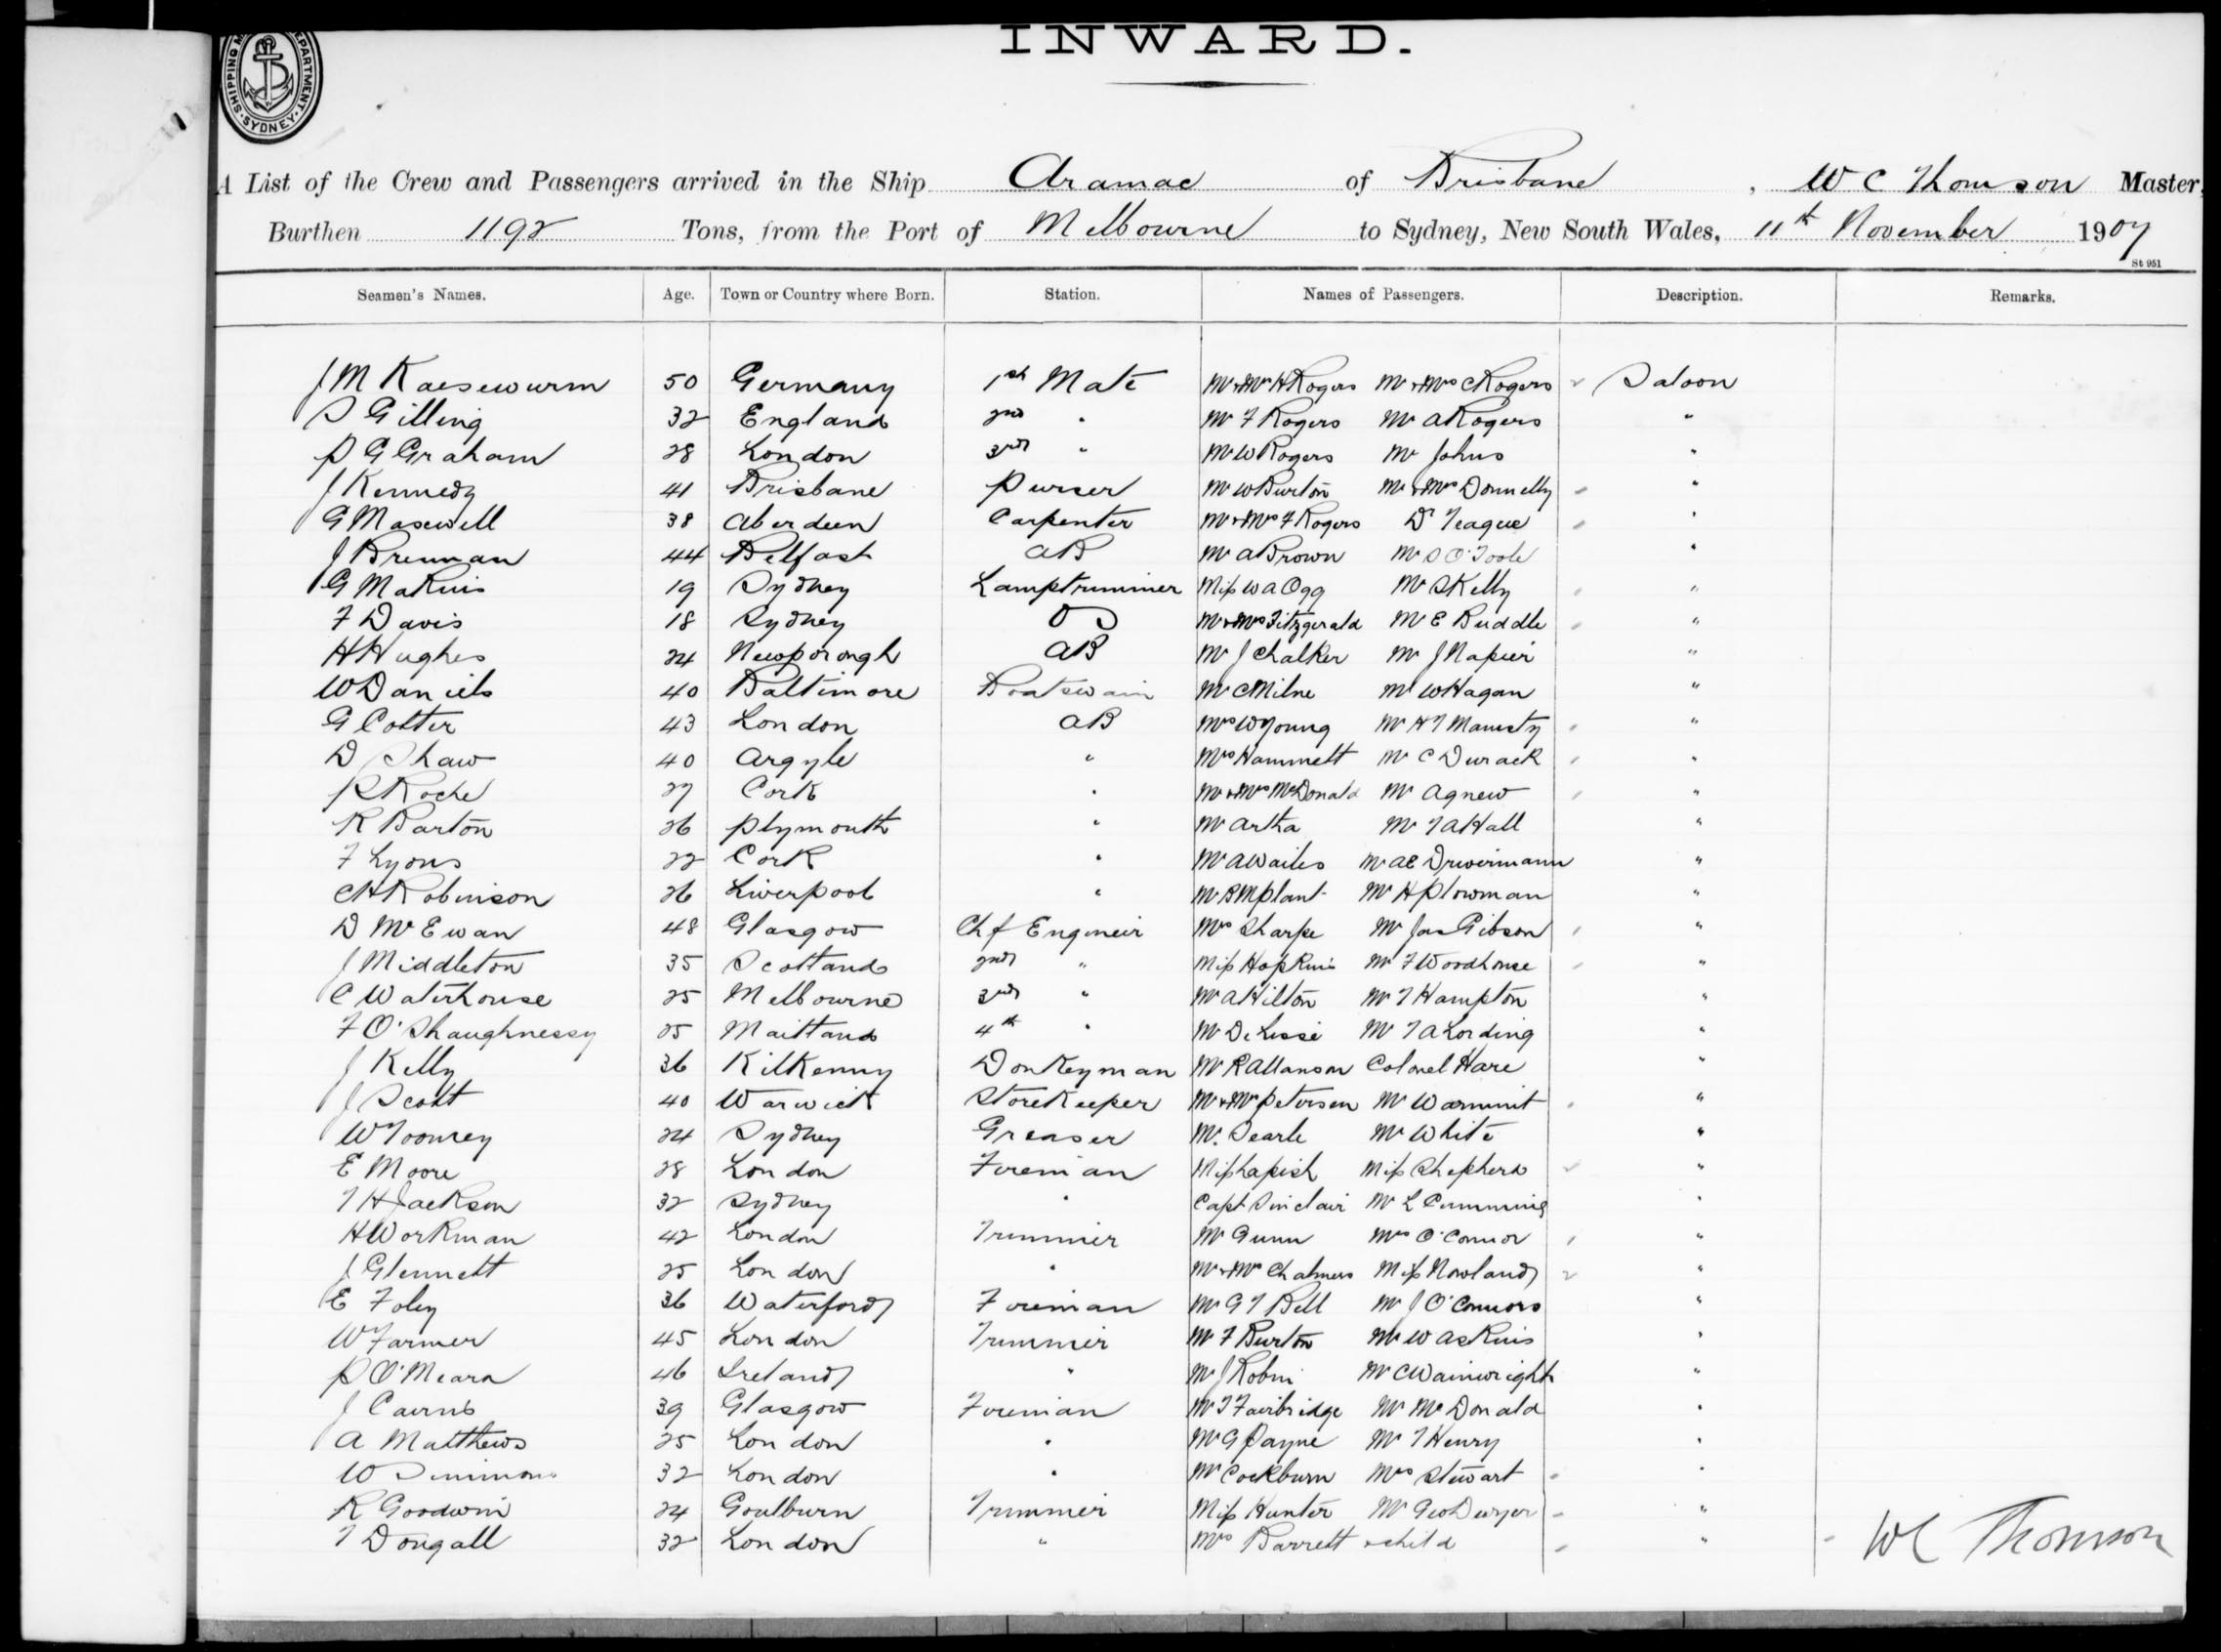 INWARD.
SHIPPING DEPARTMENT SYDNEY
A List of the Crew and Passengers arrived in the Ship Aramac of Brisbane, W C Thomson Master,
Burthen 1192 Tons, from the Port of Melbourne to Sydney, New South Wales, 11th November 1907
St 951
Seamen's Names. Age. Town or Country where Born. Station. Names of Passengers. Description. Remarks.
J M Kaesewurm 50 Germany 1st Mate Mr & Mrs H Rogers Mr & Mrs C Rogers Saloon
S Gilling 32 England 2nd " Mr F Rogers Mr A Rogers "
P G Graham 28 London 3rd " Mr W Rogers Mr Johns "
J Kennedy 41 Brisbane Purser Mr W Burton Mr & Mrs Donnelly "
G Maxwell 38 Aberdeen Carpenter Mr & Mrs F Rogers Dr Teague "
J Brennan 44 Belfast AB Mr A Brown Mr D O'Toole "
G Makins 19 Sydney Lamptrimmer Miss W A Ogg Mr S Kelly "
F Davis 18 Sydney OS Mr & Mrs Fitzgerald Mr E Buddle "
H Hughes 24 Newborough AB Mr J Chalker Mr J Napier "
W Daniels 40 Baltimore Boatswain Mr C Milne Mr W Hagan "
G Cotter 43 London AB Mrs W Young Mr H T "
D Shaw 40 Argyle " Mrs Hammett Mr C Durack "
P Roche 27 Cork " Mr & Mrs McDonald Mr Agnew "
R Barton 26 Plymouth " Mr Artha Mr T A Hall "
F Lyons 22 Cork " Mr A Waites Mr A E "
C H Robinson 26 Liverpool " Mr B M Plant Mr H Plowman "
D McEwan 48 Glasgow Chf Engineer Mrs Sharpe Mr Jas Gibson "
J Middleton 35 Scotland 2nd " Miss Hopkins Mr F Woodhouse "
C Waterhouse 25 Melbourne 3rd " Mr A Hilton Mr T Hampton "
F O'Shaughnessy 25 Maitland 4th " Mr De Lissa Mr T A Lording "
J Kelly 36 Kilkenny Donkeyman Mr R Allanson Colonel Hare "
J Scott 40 Warwick Storekeeper Mr & Mrs Peterson Mr "
W Toomey 24 Sydney Greaser Mr. Searle Mr White "
E Moore 28 London Fireman Miss Lapish Miss Shepherd "
T H Jackson 32 Sydney " Capt Sinclair Mr L Cumming "
H Workman 42 London Trimmer Mr Gunn Mrs O'Connor "
J Glennett 25 London " Mr & Mrs Chalmers Miss Nowland "
E Foley 36 Waterford Fireman Mr G T Bell Mr J O'Connors "
W Farmer 45 London Trimmer Mr F Burton Mr W Askins "
P O'Meara 46 Ireland " Mr J Robin Mr C Wainwright "
J Cairns 39 Glasgow Fireman Mr T Fairbridge Mr McDonald "
A Matthews 25 London " Mr G Payne Mr T Henry "
W Simmons 32 London " Mr Cockburn Mrs Stewart "
R Goodwin 24 Goulburn Trimmer Miss Hunter Mr Geo Dwyer "
T Dougall 32 London " Mrs Barrett & child "
W C Thomson